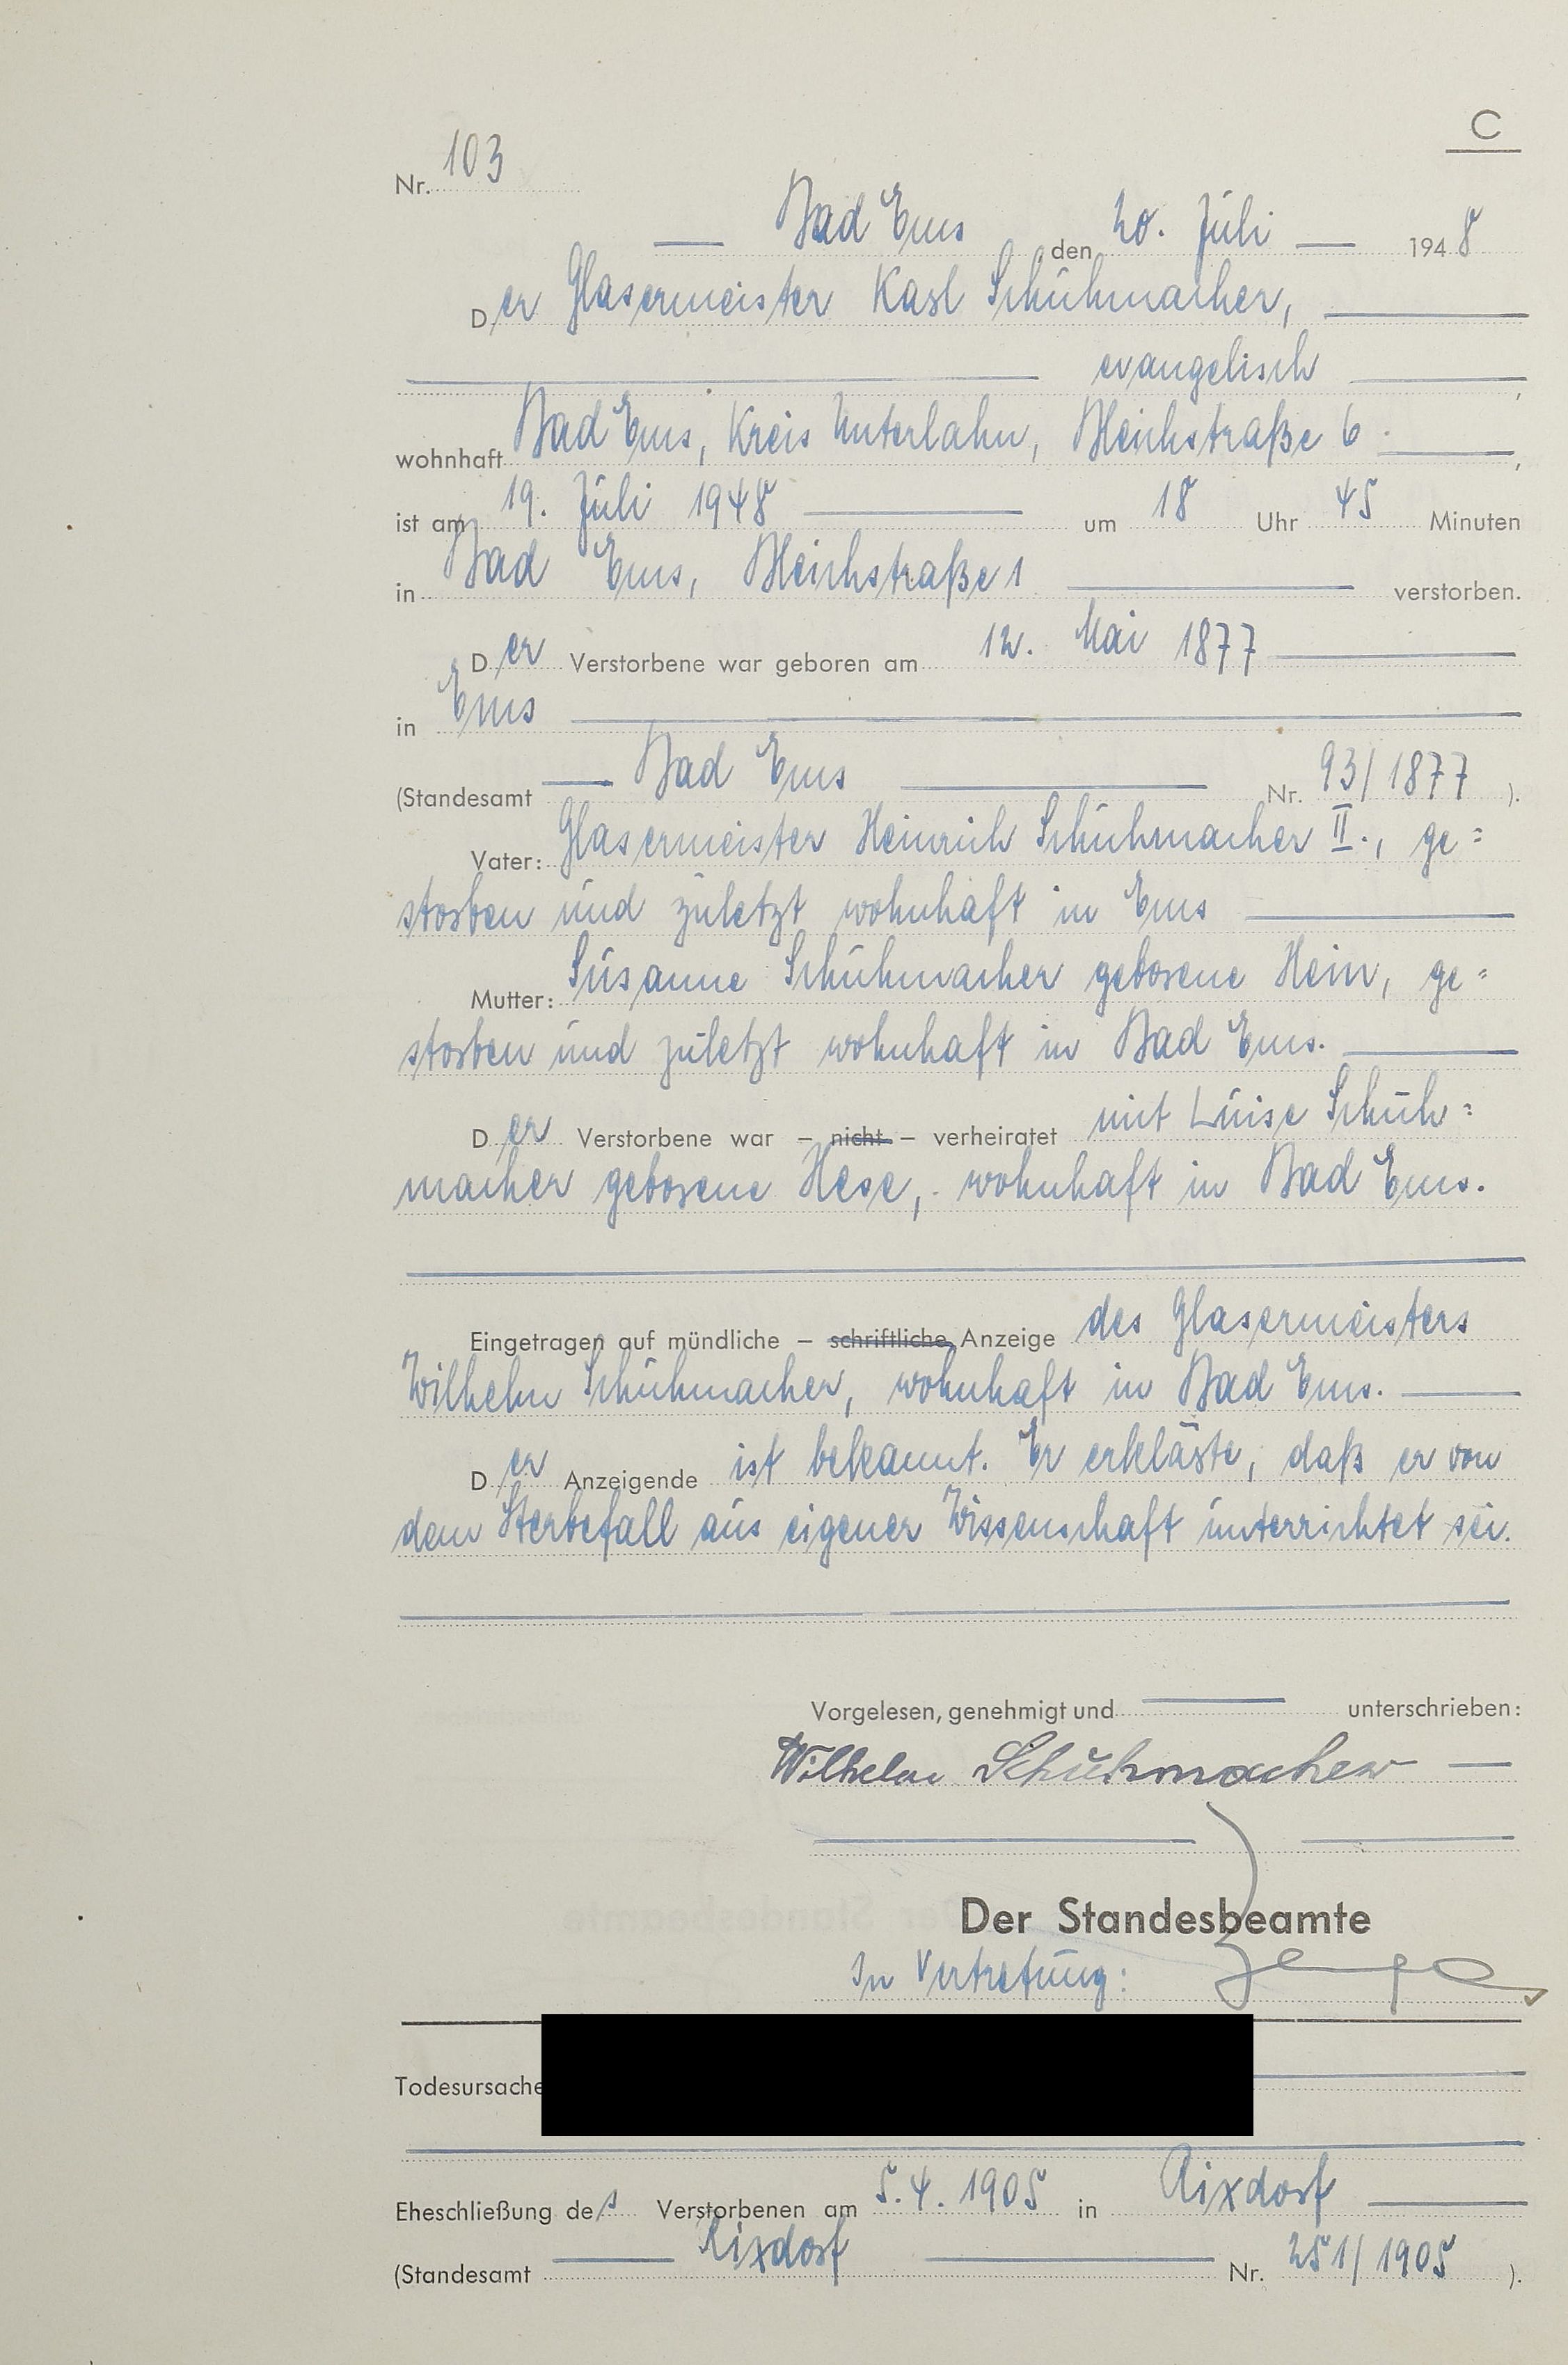 C
Nr. 103
Bad Ems den 20. Juli 1948
Der Glasermeister Karl Schuhmacher,
evangelisch ,
wohnhaft Bad Ems, Kreis Unterlahn, Bleichstraße 6. ,
ist am 19. Juli 1948 um 18 Uhr 45 Minuten
in Bad Ems, Bleichstraße 1 verstorben.
Der Verstorbene war geboren am 12. Mai 1877
in Ems
(Standesamt Bad Ems Nr. 93/1877 ).
Vater: Glasermeister Heinrich Schuhmacher II., ge=
storben und zuletzt wohnhaft in Ems
Mutter: Susanne Schuhmacher geborene Hein, ge=
storben und zuletzt wohnhaft in Bad Ems.
Der Verstorbene war – nicht – verheiratet mit Luise Schuh=
macher geborene Hese, wohnhaft in Bad Ems.
Eingetragen auf mündliche – schriftliche Anzeige des Glasermeisters
Wilhelm Schuhmacher, wohnhaft in Bad Ems.
Der Anzeigende ist bekannt. Er erklärte, daß er von
dem Sterbefall aus eigener Wissenschaft unterrichtet sei.
Vorgelesen, genehmigt und unterschrieben:
Wilhelm Schuhmacher
Der Standesbeamte
In Vertretung:
Todesursache
Eheschließung des Verstorbenen am 5.4.1905 in Rixdorf
(Standesamt Rixdorf Nr. 251/1905 ).